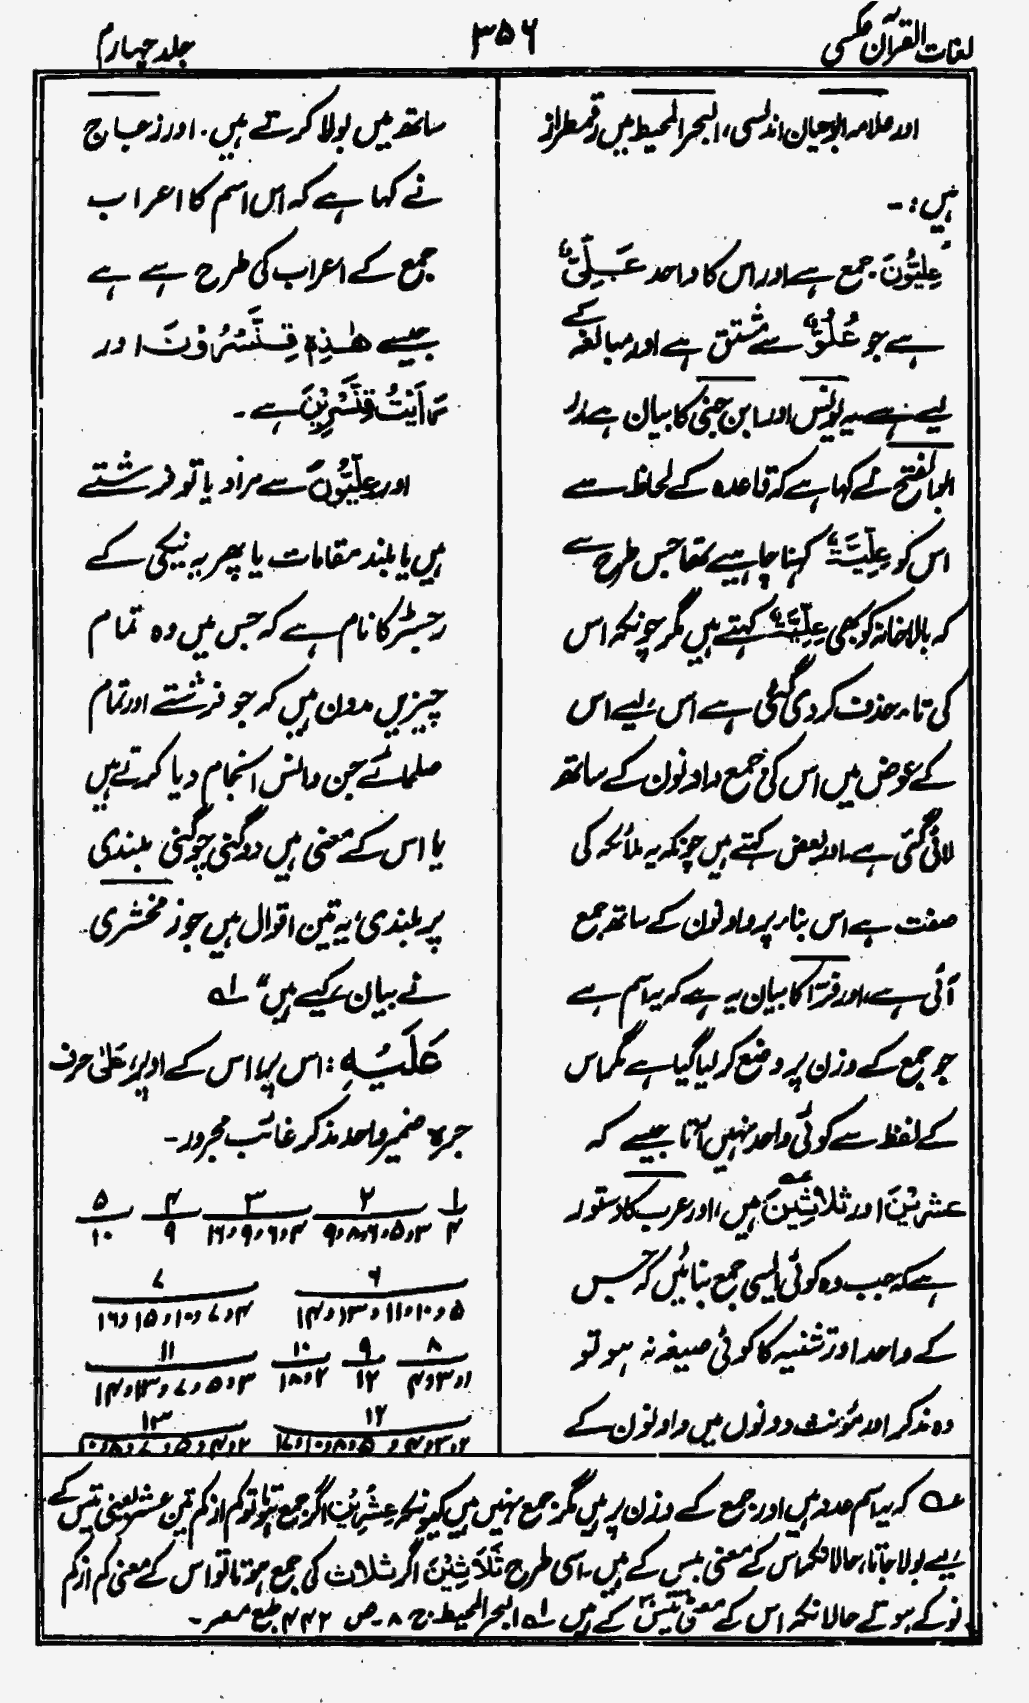 لغات القرآن عکسی
۳۵۶
جلد چہارم
اور علامہ ابوحیان اندلسی، البحر المحیط میں رقمطراز
ہیں :۔
عِلِّیُّوْنَ جمع ہے اور اس کا واحد عَلِیٌّ
ہے جو عُلُوٌّ سے مشتق ہے اور مبالغہ کے
لیے ہے۔ یہ یونس اور ابن جنی کا بیان ہے اور
ابوالفتح نے کہا ہے کہ قاعدہ کے لحاظ سے
اس کو عِلِّیَّۃٌ کہنا چاہیے تھا جس طرح سے
کہ بالاخانہ کو بھی عِلِّیَّۃٌ کہتے ہیں مگر چونکہ اس
کی تاء حذف کر دی گئی ہے اس لیے اس
کے عوض میں اس کی جمع واو نون کے ساتھ
لائی گئی ہے۔ اور بعض کہتے ہیں چونکہ یہ ملائکہ کی
صفت ہے اس بناء پر واو نون کے ساتھ جمع
آئی ہے، اور فرّا کا بیان یہ ہے کہ یہ اسم ہے
جو جمع کے وزن پر وضع کر لیا گیا ہے مگر اس
کے لفظ سے کوئی واحد نہیں آتا جیسے کہ
عشرِیْنَ اور ثلاثِیْنَ عہ ہیں، اور عرب کا دستور
ہے کہ جب وہ کوئی ایسی جمع بنائیں کہ جس
کے واحد اور تثنیہ کا کوئی صیغہ نہ ہو تو
وہ مذکر اور مؤنث دونوں میں واو نون کے
ساتھ میں بولا کرتے ہیں۔ اور زجاج
نے کہا ہے کہ اس اسم کا اعراب
جمع کے اعراب کی طرح سے ہے
جیسے ھٰذِہٖ قِنَّسْرُوْنَ اور
رَاَیْتُ قِنَّسْرِیْنَ ہے۔
اور عِلِّیُّوْنَ سے مراد یا تو فرشتے
ہیں یا بلند مقامات یا پھر یہ نیکی کے
رجسٹر کا نام ہے کہ جس میں وہ تمام
چیزیں مدون ہیں کہ جو فرشتے اور تمام
صلحائے جن وانس انجام دیا کرتے ہیں
یا اس کے معنی ہیں دوگنی چوگنی بلندی
پر بلندی، یہ تین اقوال ہیں جو زمخشری
نے بیان کیے ہیں" لہ
عَلَیْہِ : اس پر، اس کے اوپر، عَلیٰ حرف
جر ہ ضمیر واحد مذکر غائب مجرور۔
۱ ۲ ۳ ۴ ۵
۴ ۳،۵،۶،۸،۹ ۴،۶،۹،۱۶ ۹ ۱۰
۶ ۷
۵،۱۰،۱۱،۱۳،۱۴ ۴،۷،۱۰،۱۵،۱۶
۸ ۹ ۱۰ ۱۱
۱،۳،۴ ۱۲ ۲،۱۸ ۳،۵،۷،۱۳،۱۴
۱۲ ۱۳
۲،۳،۴،۵،۸،۱۰،۱۷ ۲،۴،۵،۷،۸،۱۰
عہ کہ یہ اسم عدد ہیں اور جمع کے وزن پر ہیں مگر جمع نہیں ہیں کیونکہ عِشْرِیْنَ اگر جمع ہوتا تو کم از کم تین عشر یعنی تیس کے
لیے بولا جاتا، حالانکہ اس کے معنی بیس کے ہیں۔ اسی طرح ثَلَاثِیْنَ اگر ثلاث کی جمع ہوتا تو اس کے معنی کم از کم
نو کے ہوتے حالانکہ اس کے معنی تیس کے ہیں لہ البحر المحیط ج ۸ ص ۴۴۲ طبع مصر۔